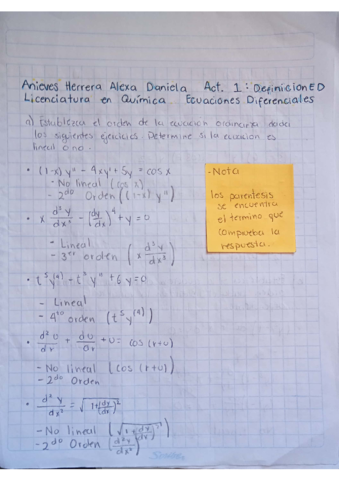 Anieves Herrera Alexa Daniela Act. 1: Definicion ED
Licenciatura en Química Ecuaciones Diferenciales
a) Establezca el orden de la ecuación ordinaria dada
los siguientes ejercicios Determine si la ecuación es
lineal o no.
• (1-x) y'' - 4xy' + 5y = cos x
- No lineal (cos x)
- 2do Orden ((1-x) y'')
• x d³y/dx³ - (dy/dx)⁴ + y = 0
- Lineal
- 3er orden (x d³y/dx³)
• t⁵y⁽⁴⁾ - t³y'' + 6y = 0
- Lineal
- 4to orden (t⁵ y⁽⁴⁾)
• d²u/dr + du/dr + u = cos (r+u)
- No lineal (cos (r+u)
- 2do Orden
• d²y/dx² = √1+(dy/dx)²
- No lineal (√1+(dy/dx)²)
- 2do Orden (d²y/dx²)
- Nota
los parentesis
se encuentra
el termino que
comprueba la
respuesta.